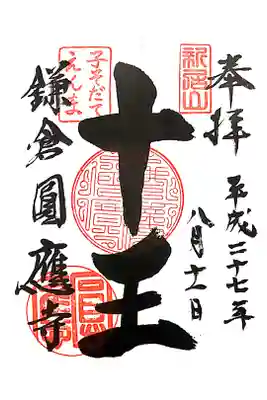 奉拝
平成二十七年
八月十一日
新居山
十王
子そだて
えんま
鎌倉圓應寺